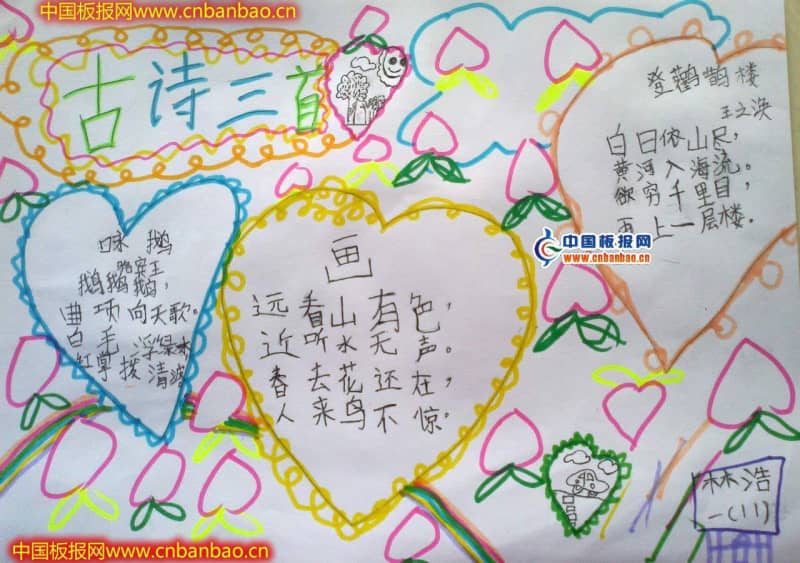 中国板报网www.cnbanbao.cn
古诗三首
登鹳鹊楼
王之涣
白日依山尽，
黄河入海流。
欲穷千里目，
更上一层楼.
中国板报网
www.cnbanbao.cn
咏鹅
骆宾王
鹅鹅鹅，
曲项向天歌。
白毛浮绿水
红掌拨清波
画
远看山有色，
近听水无声。
春去花还在，
人来鸟不惊。
林浩
一(11)
中国板报网www.cnbanbao.cn